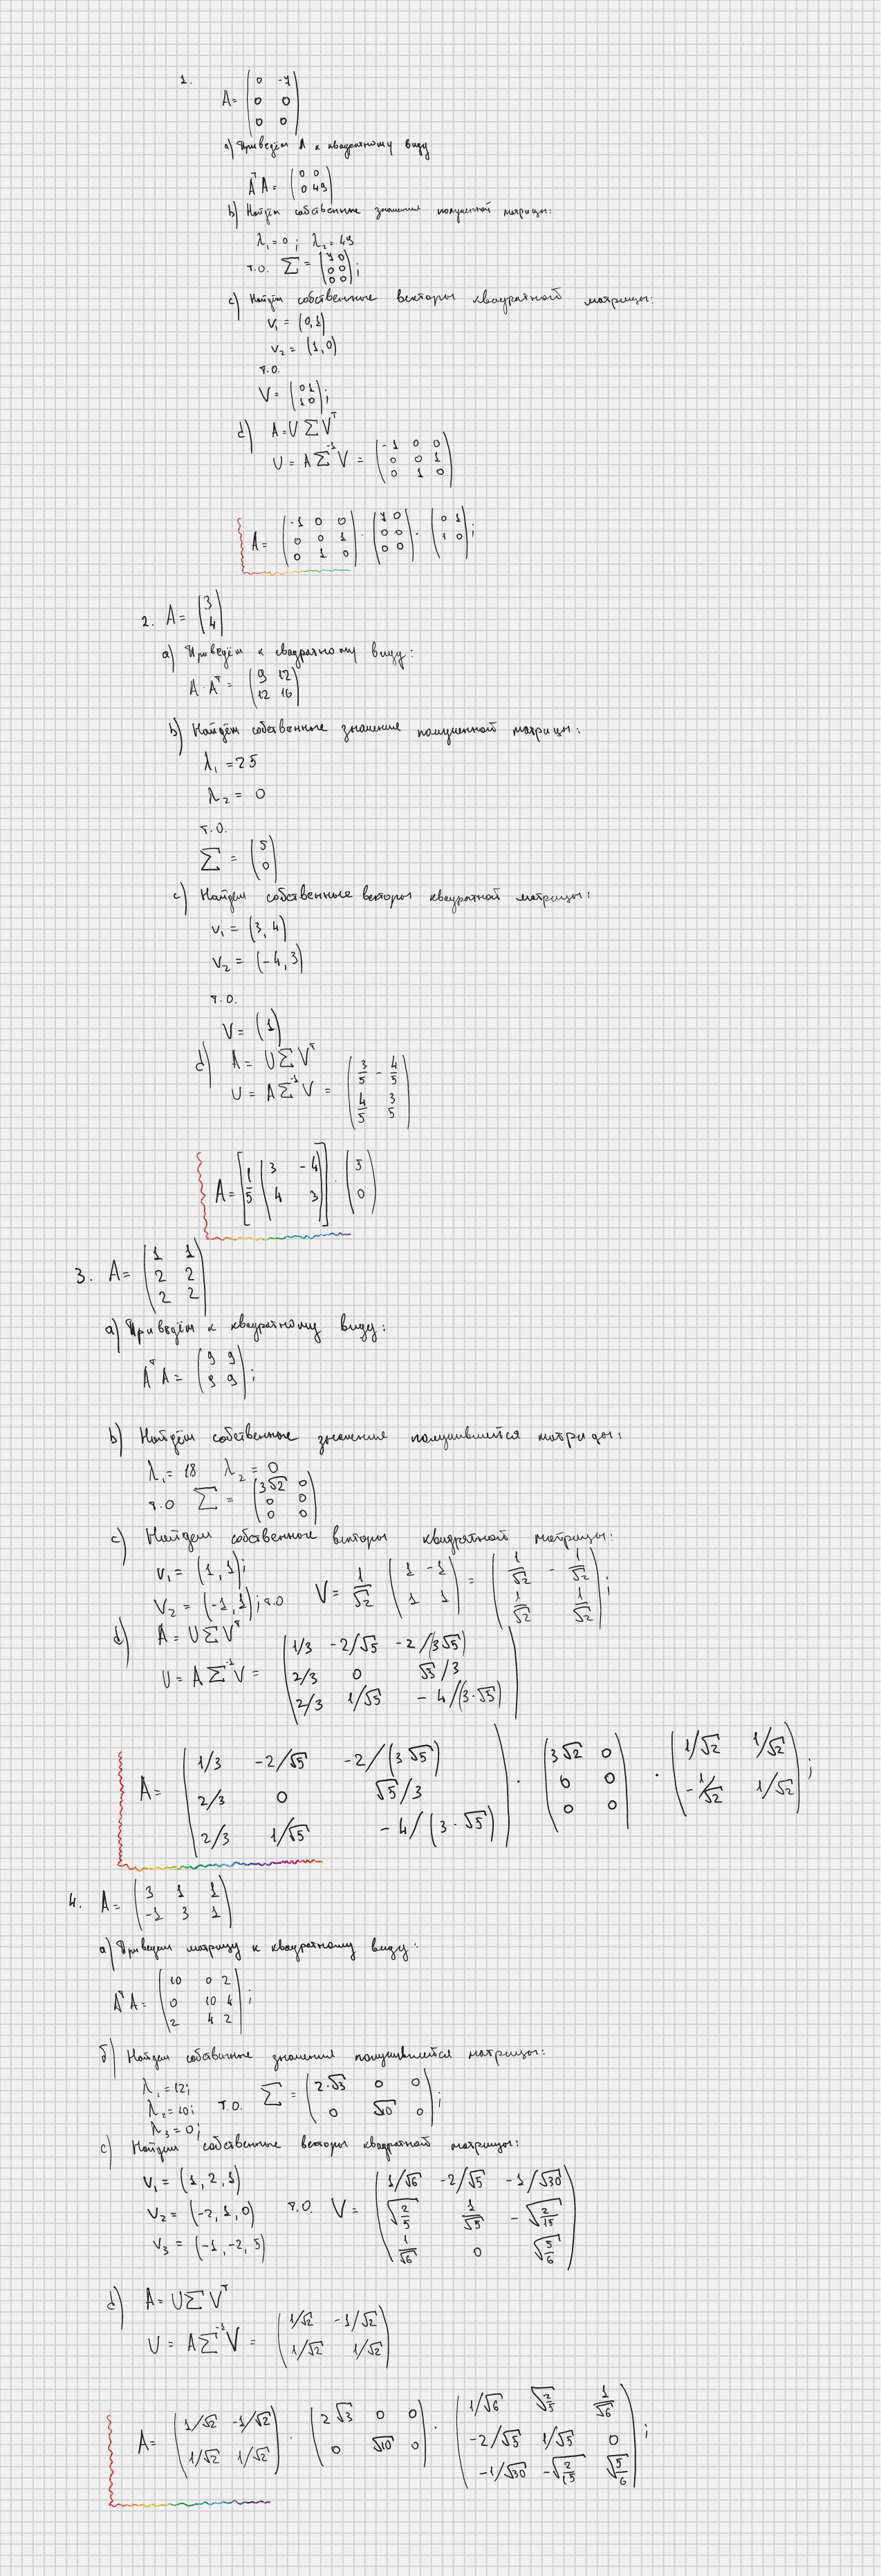 1.
A = (0 -7; 0 0; 0 0)
a) Приведём A к квадратному виду
AᵀA = (0 0; 0 49)
b) Найдём собственные значение полученной матрицы:
λ₁ = 0; λ₂ = 49
т.о. Σ = (7 0; 0 0; 0 0);
c) Найдём собственные векторы квадратной матрицы:
v₁ = (0,1)
v₂ = (1,0)
т.о.
V = (0 1; 1 0);
d) A = UΣVᵀ
U = AΣ⁻¹V = (-1 0 0; 0 0 1; 0 1 0)
A = (-1 0 0; 0 0 1; 0 1 0) · (7 0; 0 0; 0 0) · (0 1; 1 0);
2. A = (3; 4)
a) Приведём к квадратному виду:
A·Aᵀ = (9 12; 12 16)
b) Найдём собственные значение полученной матрицы:
λ₁ = 25
λ₂ = 0
т.о.
Σ = (5; 0)
c) Найдем собственные векторы квадратной матрицы:
v₁ = (3, 4)
v₂ = (-4, 3)
т.о.
V = (1)
d) A = UΣVᵀ
U = AΣ⁻¹V = (3/5 -4/5; 4/5 3/5)
A = [1/5 (3 -4; 4 3)] · (5; 0)
3. A = (1 1; 2 2; 2 2)
a) Приведём к квадратному виду:
AᵀA = (9 9; 9 9);
b) Найдём собственные значение получившейся матрицы:
λ₁ = 18 λ₂ = 0
т.о Σ = (3√2 0; 0 0; 0 0)
c) Найдем собственные векторы квадратной матрицы:
v₁ = (1, 1);
v₂ = (-1, 1); т.о V = 1/√2 (1 -1; 1 1) = (1/√2 -1/√2; 1/√2 1/√2);
d) A = UΣVᵀ
U = AΣ⁻¹V = (1/3 -2/√5 -2/(3√5); 2/3 0 √5/3; 2/3 1/√5 -4/(3·√5))
A = (1/3 -2/√5 -2/(3√5); 2/3 0 √5/3; 2/3 1/√5 -4/(3·√5)) · (3√2 0; 0 0; 0 0) · (1/√2 1/√2; -1/√2 1/√2);
4. A = (3 1 1; -1 3 1)
a) Приведем матрицу к квадратному виду:
AᵀA = (10 0 2; 0 10 4; 2 4 2);
б) Найдем собственные значения получившейся матрицы:
λ₁ = 12;
λ₂ = 10; т.о. Σ = (2·√3 0 0; 0 √10 0);
λ₃ = 0;
c) Найдем собственные векторы квадратной матрицы:
v₁ = (1, 2, 1)
v₂ = (-2, 1, 0) т.о. V = (1/√6 -2/√5 -1/√30; √(2/5) 1/√5 -√(2/15); 1/√6 0 √(5/6))
v₃ = (-1, -2, 5)
d) A = UΣVᵀ
U = AΣ⁻¹V = (1/√2 -1/√2; 1/√2 1/√2)
A = (1/√2 -1/√2; 1/√2 1/√2) · (2√3 0 0; 0 √10 0) · (1/√6 √(2/5) 1/√6; -2/√5 1/√5 0; -1/√30 -√(2/15) √(5/6));